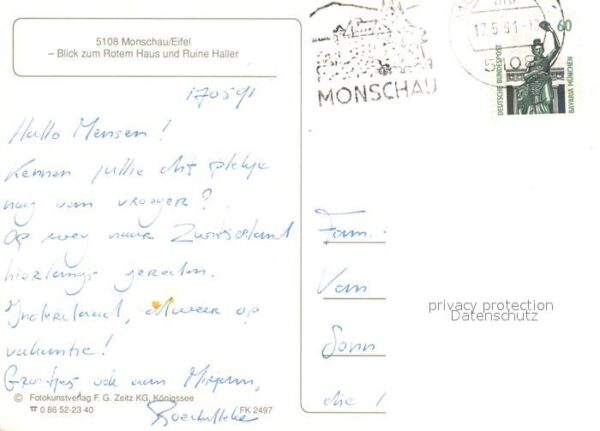 5108 Monschau/Eifel
– Blick zum Rotem Haus und Ruine Haller
170591
Hallo Mensen!
Kennen jullie dit plekje
nog van vroeger?
Op weg naar Zwitserland
hierlangs gereden.
Inderdaad, alweer op
vakantie!
Groetjes, ook aan Mirjam,
© Fotokunstverlag F. G. Zeitz KG, Königssee
☎ 0 86 52-23 40
FK 2497
MONSCHAU
17.5.91
5108
60
DEUTSCHE BUNDESPOST
BAVARIA MÜNCHEN
Fam.
Van
privacy protection
Datenschutz
die